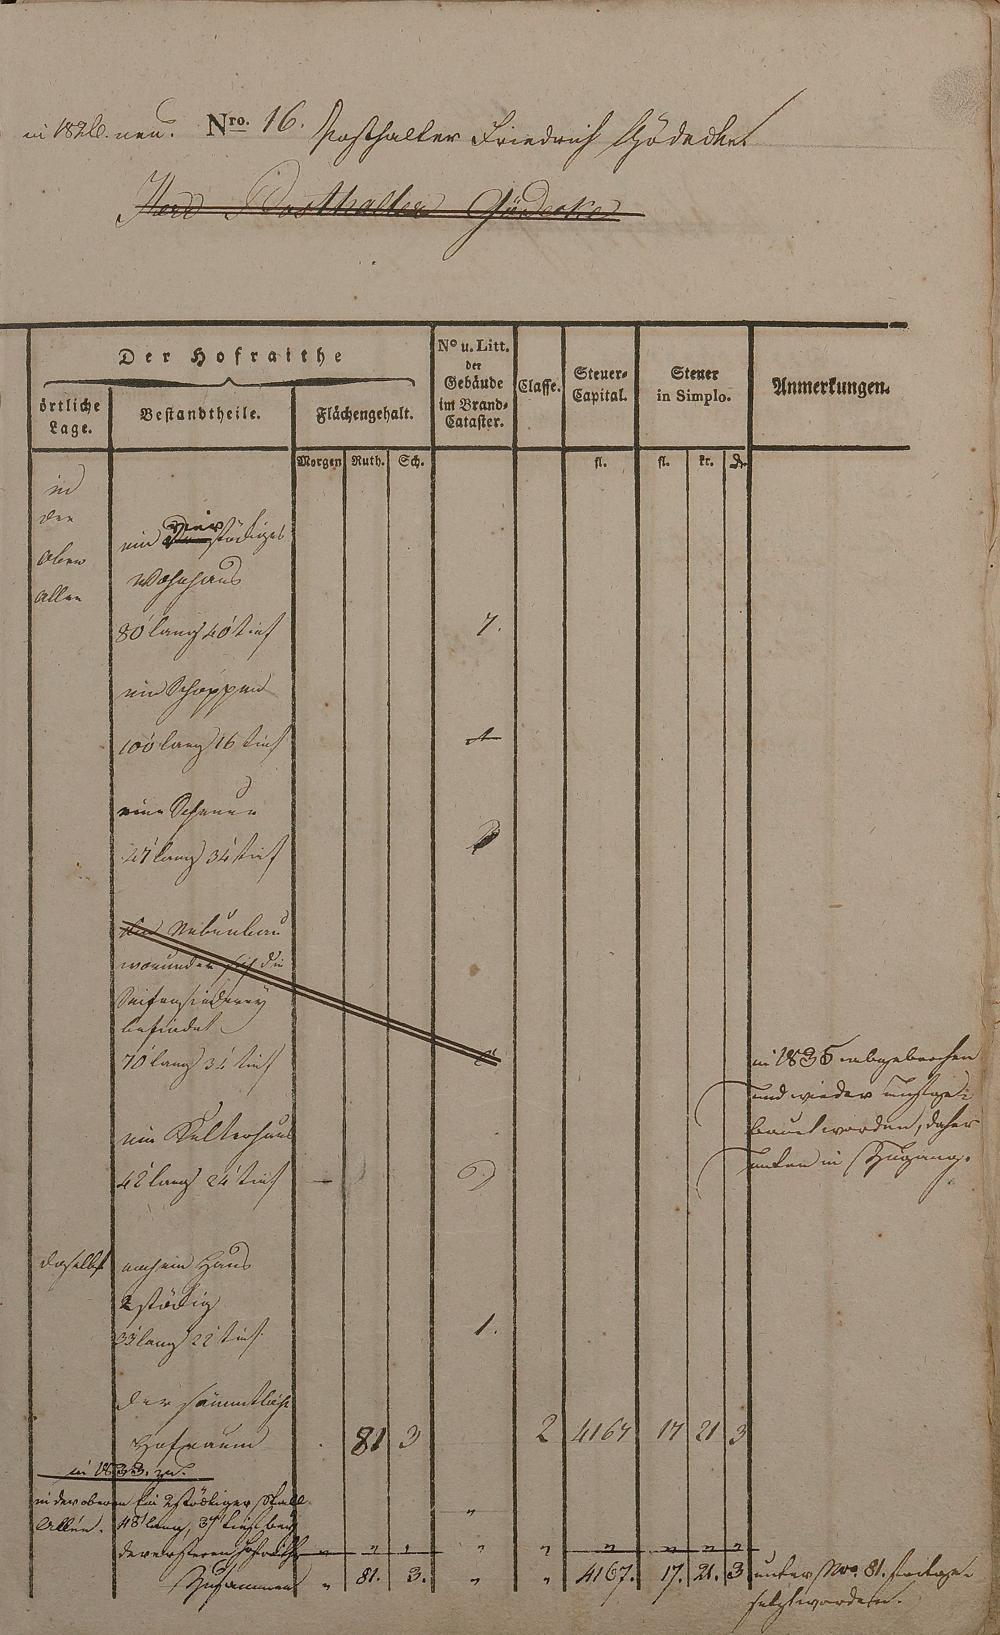 in 1826. neu. Nro. 16. Posthalter Friedrich Gödecke.
Herr Posthalter Gödecke
Der Hofraithe
örtliche Lage.
Bestandtheile.
Flächengehalt.
No u. Litt. der Gebäude im Brand-Cataster.
Classe.
Steuer-Capital.
Steuer in Simplo.
Anmerkungen.
Morgen Ruth. Sch. fl. fl. kr. d.
in
der
obern
Allee
ein vier stöckiges
Wohnhaus
80' lang 40' tief 7.
ein Schoppen
100' lang 16' tief A
eine Scheuer
47' lang 34' tief B
Nebenbau
worunter sich die
Seifensiederey
befindet
70' lang 34' tief C
in 1835 abgebrochen
und wieder
bauet worden, daher
unten in Zugang.
ein Kelterhaus
42' lang 24' tief D
daselbst noch ein Haus
2 stöckig
33' lang 22' tief 1.
der sämmtliche
Hofraum 81 3 2 4167 17 21 3
in 1833. zu.
in der obern Ein 2 stöckiger Stall
Allee. 48' lang, 34' tief bey
der ersteren Hofraithe " " " " " " " "
Zusammen " 81. 3. " " 4167. 17. 21. 3 unter Nro. 81. fortge-
setzt worden.